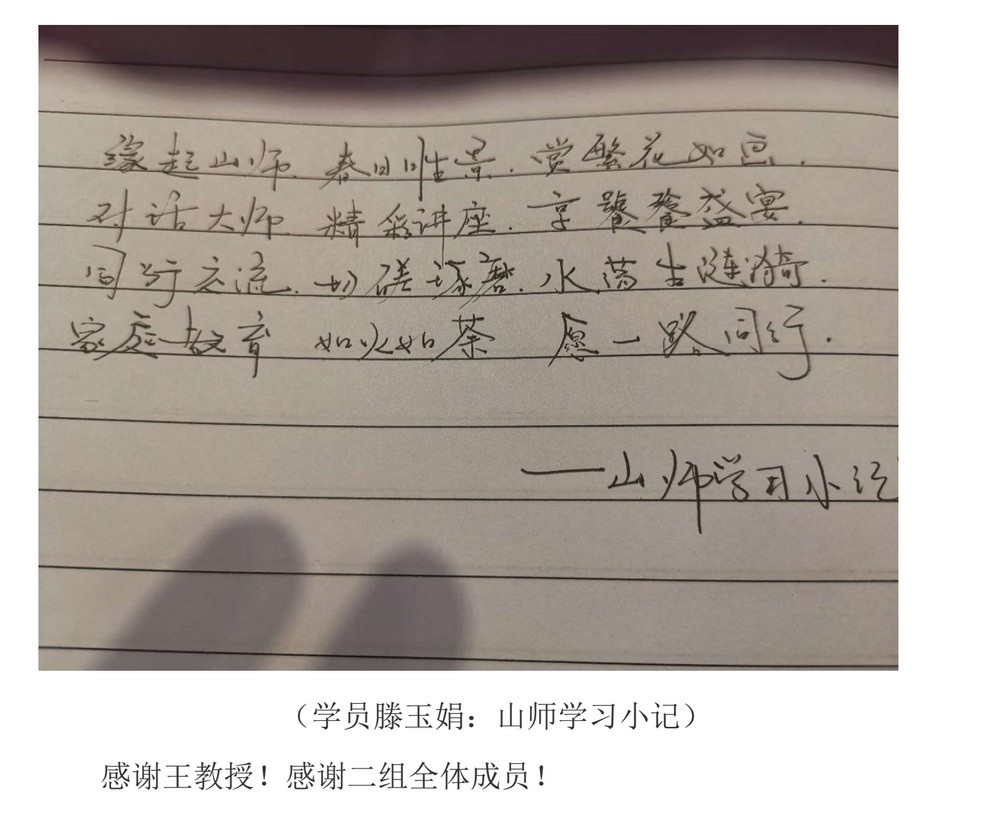 缘起山师.春日胜景.赏繁花如画.
对话大师 精彩讲座.享饕餮盛宴.
同行交流.切磋琢磨.水荡生涟漪.
家庭教育 如火如荼 愿一路同行.
——山师学习小记
（学员滕玉娟：山师学习小记）
感谢王教授！感谢二组全体成员！